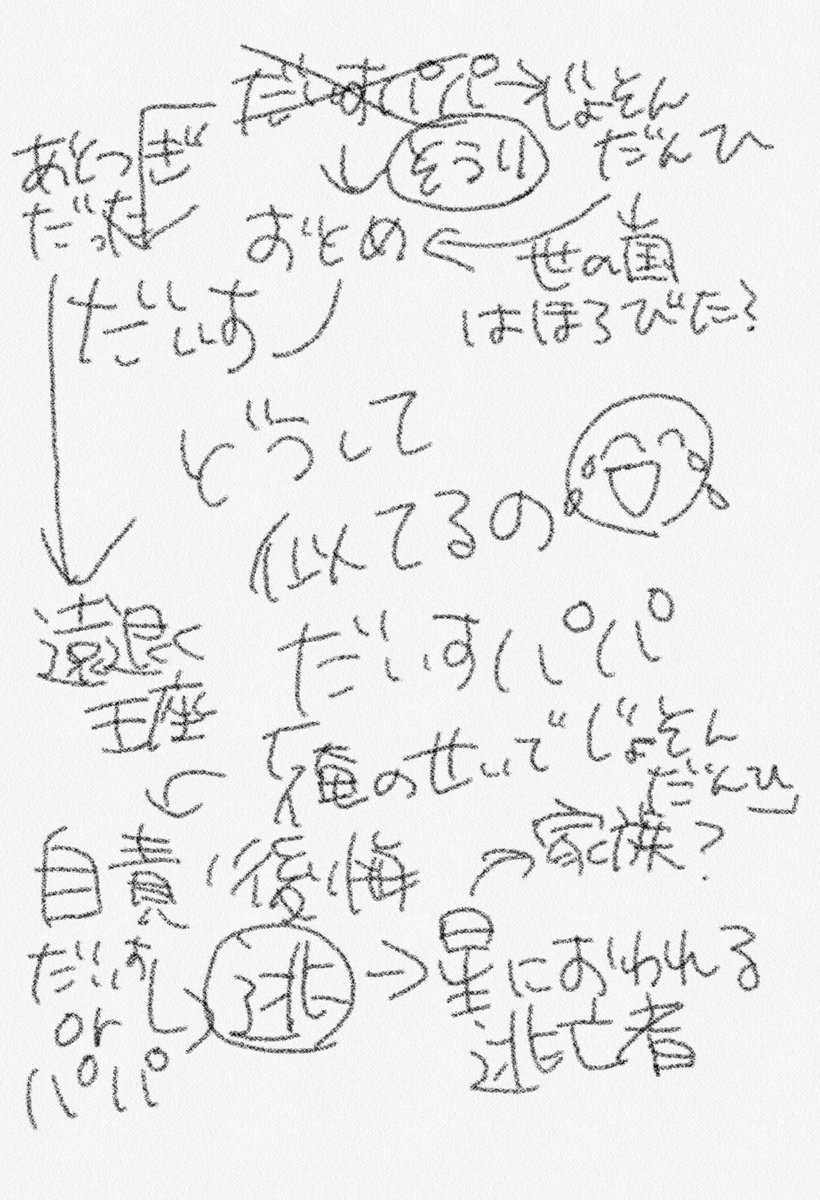 だいすパパ→じょそん
だんひ
そうり
あとつぎ
だった
おとめ
世の菌
はほろびた?
だいす
どうして
似てるの
遠退く
王座
だいすパパ
「俺のせいでじょそん
だんひ」
自責 後悔
家族?
だいす
or
パパ
逃→星におわれる
逃亡者